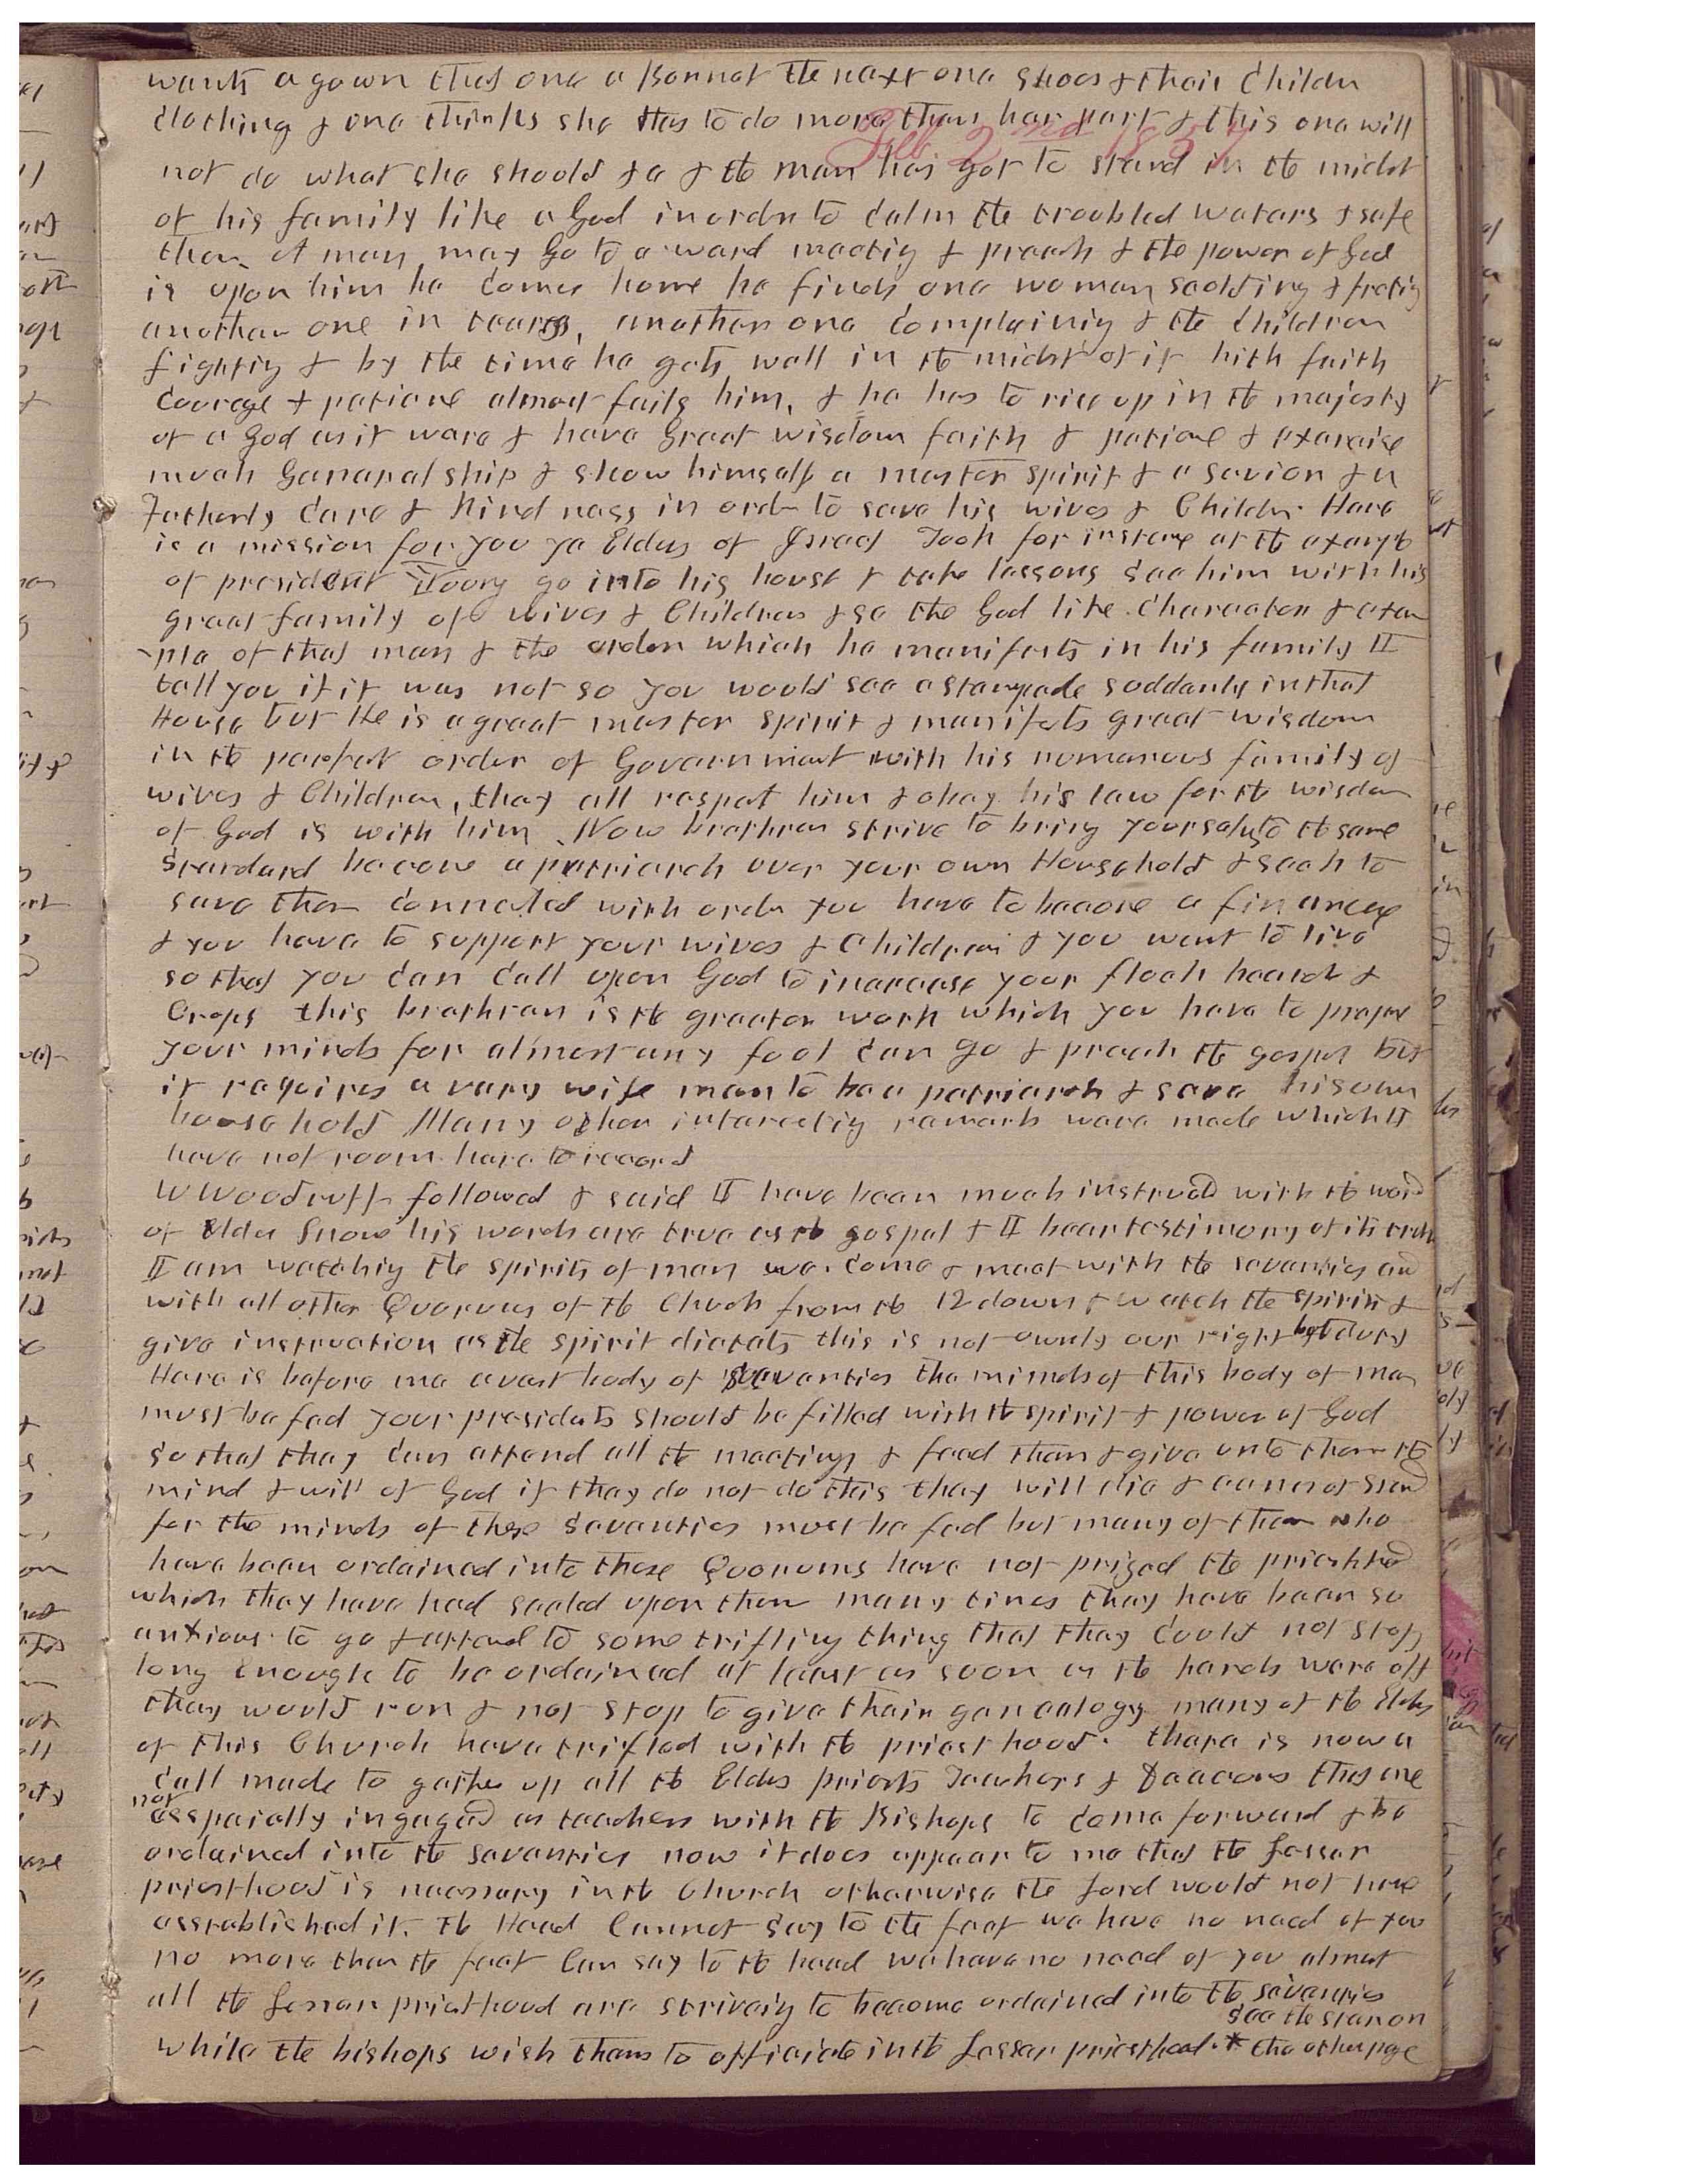 wants a gown that one a Bonnet the next one Shoes & their Childrn
Clothing & one thinks she Has to do more than her part & this one will
Feb. 2nd 1857
not do what she should do & the man has got to stand in the midst
of his family like a God in order to Calm the troubled waters & safe
them. A man may Go to a ward meetig & preach & the power of God
is upon him he Comes home he finds one woman scolding & fretig
another one in tears, another one Complainig & the Children
fightig & by the time he gets well in the midst of it hith faith
Courage & patiene almost fails him, & he has to rise up in the majesty
of a God as it were & have Great wisdom faith & patiene & exercise
much Generalship & show himself a master spirit & a savior &
Fatherly Care & Kindness in order to save his wives & Childrn. Here
is a mission for you ye Elders of Israel Look for instane at the example
of president Young go into his house & take lessons see him with his
great family of wives & Children & se the God like Character & exam
ple of that man & the order which he manifests in his family I
tell you if it was not so you would see a stampede suddenly in that
House but He is a great master spirit & manifests great wisdom
in the perfect order of Government with his numerous family of
wives & Children, they all respet him & obey his law for the wisdom
of God is with him Now brethren strive to bring yourselves to the same
Standard become a patriarch over your own Household & seek to
save them Connected with order you have to become a financier
& you have to support your wives & Children & you want to live
so that you Can Call upon God to increase your flock heards &
Crops this brethren is the greater work which you have to prepare
your minds for almost any fool Can go & preach the gospel but
it requires a very wise man to be a patriarch & save his own
household Many other interestig remarks were made which I
have not room here to record
W Woodruff followed & said I have been much instructd with the word
of Elder Snow his words are true as the gospel & I bear testimony of its truth
I am watchig the spirits of men we come & meet with the seventies and
with all other Quorums of the Church from the 12 down & watch the spirit &
give instruction as the spirit dictats this is not ownly our right but duty
Here is before me a vast body of seventies the minds of this body of men
must be fed your presidets should be filled with the spirit & power of God
so that they Can attend all the meetings & feed them & give unto them the
mind & will of God if they do not do this they will die & cannot stand
for the minds of these Seventies must be fed but many of them who
have been ordained into these Quorums have not prized the priesthood
which they have had sealed upon them many times they have been so
anxious to go & attend to some trifling thing that they Could not stop
long Enough to be ordained at least as soon as the hands were off
they would run & not stop to give their genealogy many of the Elders
of this Church have trifled with the priesthood. there is now a
Call made to gather up all the Elders priests Teachers & Deacons that are
not
esspecially ingaged as teachers with the Bishops to Come forward & be
ordained into the seventies now it does appear to me that the Lesser
priesthood is necessary in the Church otherwise the Lord would not have
esstablished it. the Head Cannot say to the feet we have no need of you
no more than the feet Can say to the head we have no need of you almost
all the Lesser priesthood are striveig to become ordained into the seventies
while the bishops wish them to officiate in the Lesser priesthood. * See the star on
the other page